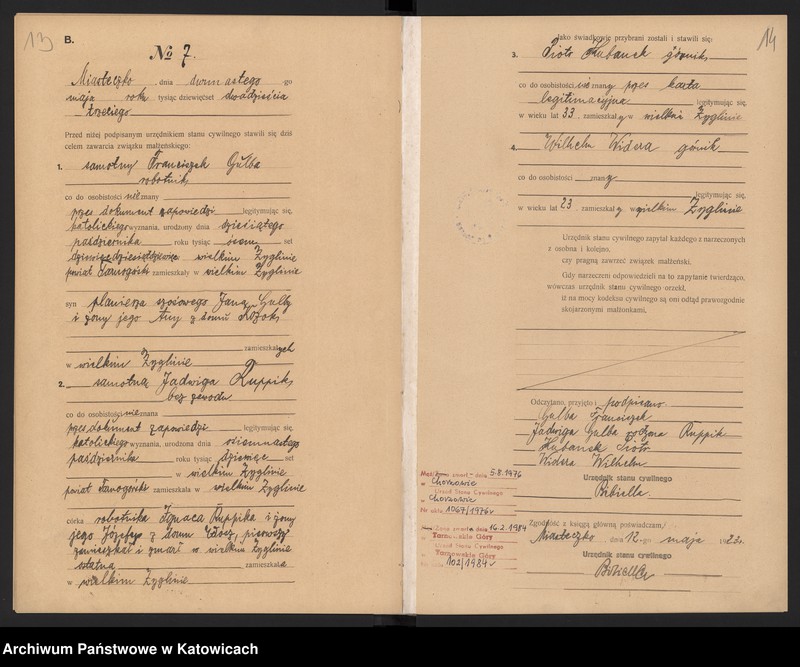 13
B.
№ 7.
Miasteczko, dnia dwunastego -go
maja roku tysiąc dziewięćset dwadzieścia
trzeciego
Przed niżej podpisanym urzędnikiem stanu cywilnego stawili się dziś
celem zawarcia związku małżeńskiego:
1. samotny Franciszek Gulba
robotnik
co do osobistości nieznany
przez dokument zapowiedzi legitymując się,
katolickiego wyznania, urodzony dnia dziesiątego
października roku tysiąc set
wielkim Zyglinie
powiat Tarnogórski zamieszkały w wielkim Zyglinie
syn Jana Gulby
i żony jego z domu
zamieszkałych
w wielkim Zyglinie
2. samotna Jadwiga Ruppik,
bez zawodu
co do osobistości nieznana
przez dokument zapowiedzi legitymując się,
katolickiego wyznania, urodzona dnia osiemnastego
października roku tysiąc dziewięć set
w wielkim Zyglinie
powiat Tarnogórski zamieszkała w wielkim Zyglinie
córka robotnika Ignaca Ruppika i żony
jego Józefy z domu pierwszy
zamieszkał i zmarł w wielkim Zyglinie
ostatna zamieszkała
w wielkim Zyglinie
14
Jako świadkowie przybrani zostali i stawili się:
3. Piotr Hubanek górnik
co do osobistości nieznany przez karta
legitimacyjna legitymując się,
w wieku lat 33, zamieszkały w wielkim Zyglinie
4. Wilhelm Widera górnik
co do osobistości znany
legitymując się,
w wieku lat 23, zamieszkały w wielkim Zyglinie
Urzędnik stanu cywilnego zapytał każdego z narzeczonych
z osobna i kolejno,
czy pragną zawrzeć związek małżeński.
Gdy narzeczeni odpowiedzieli na to zapytanie twierdząco,
wówczas urzędnik stanu cywilnego orzekł,
iż na mocy kodeksu cywilnego są oni odtąd prawozgodnie
skojarzonymi małżonkami.
Odczytano, przyjęto i podpisano.
Gulba Franciszek
Jadwiga Gulba rodzona Ruppik
Hubanek Piotr
Widera Wilhelm
Urzędnik stanu cywilnego
Bibiella.
Zgodność z księgą główną poświadczam,
Miasteczko, dnia 12-go maja 1923r.
Urzędnik stanu cywilnego
Bibiella
Mąż zmarł dnia 5.8.1976
w Chorzowie
Urząd Stanu Cywilnego
w Chorzowie
Nr aktu 1067/1976r
Żona zmarła dnia 16.2.1984
w Tarnowskie Góry
Urząd Stanu Cywilnego
w Tarnowskie Góry
102/1984r
Archiwum Państwowe w Katowicach